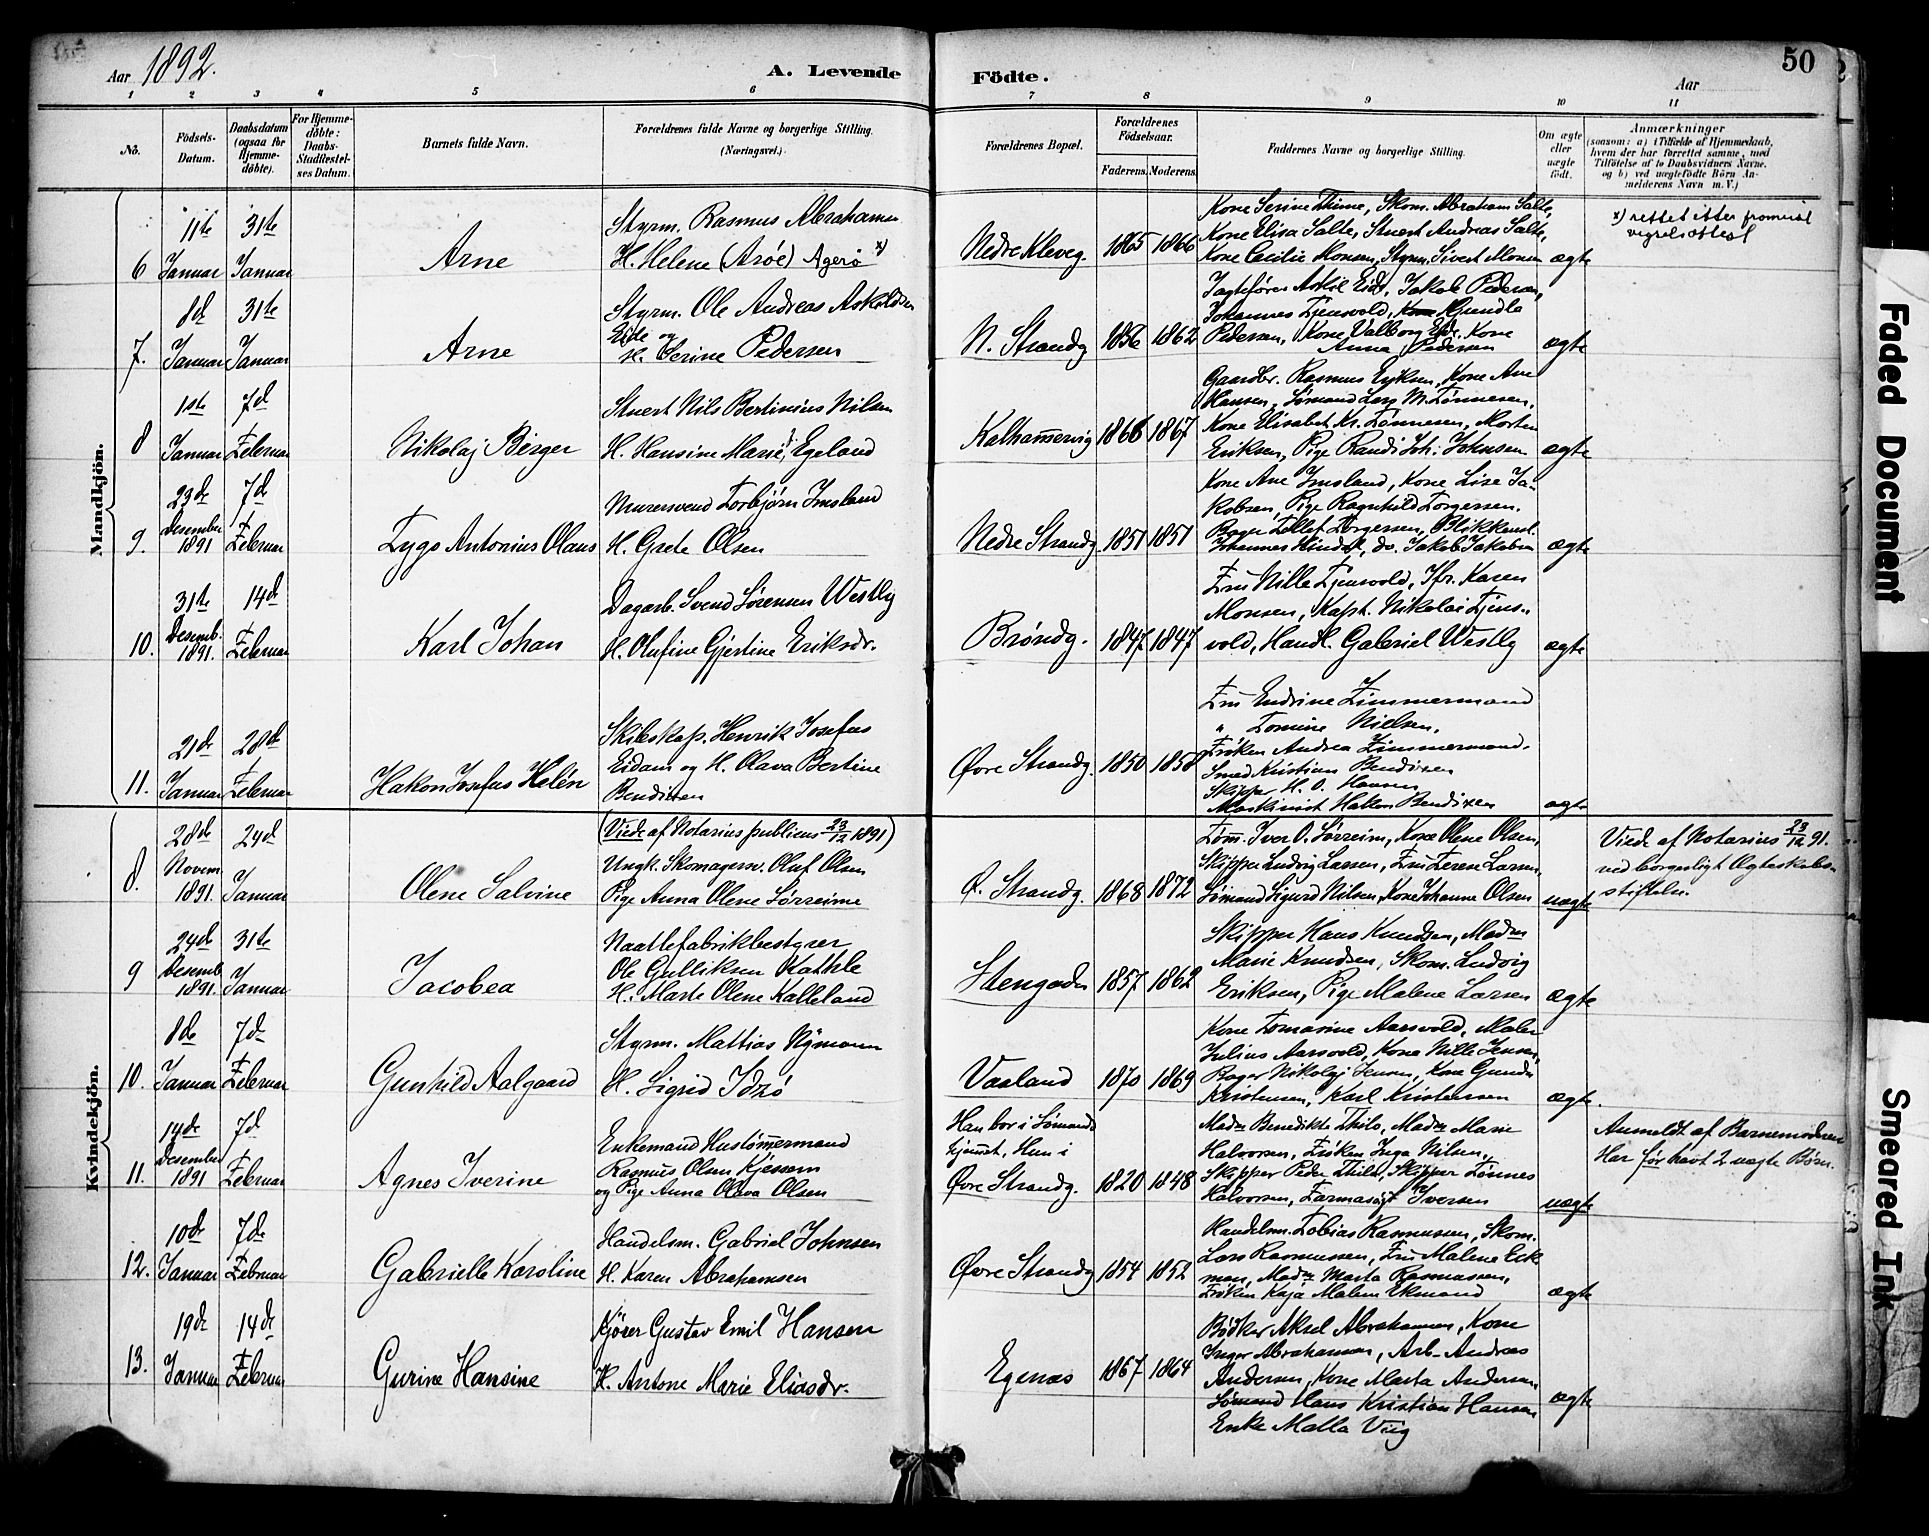 Aar 1892.
A. Levende Födte.
Aar
50
1 2 3 4 5 6 7 8 9 10 11
No.
Födsels-Datum.
Daabsdatum (ogsaa for Hjemme-döbte).
For Hjemme-döbte: Daabs-Stadfæstel-ses Datum.
Barnets fulde Navn.
Forældrenes fulde Navne og borgerlige Stilling. (Næringsvei.)
Forældrenes Bopæl.
Forældrenes Födselsaar.
Faderens. Moderens.
Faddernes Navne og borgerlige Stilling.
Om ægte eller uægte födt.
Anmærkninger
(saasom: a) i Tilfælde af Hjemmedaab, hvem der har forrettet samme, med Tilföielse af to Daabsvidners Navne. og b) ved uægtefödte Börn An-melderens Navn m. V.)
Mandkjön.
6 11te Januar 31te Januar
Arne
Styrm. Rasmus Abrahamsen
H. Helene (Arøe) Agerø x)
Nedre Kleveg. 1865 1866
Kone Serine Thime, Skom. Abraham Salte,
Kone Elisa Salte, Stuert Andreas Salte,
Kone Cecilie Monsen, Styrm. Sivert Monsen
ægte
x) rettet efter fremvist
vigselsattest
7. 8d Januar 31te Januar
Arne
Styrm. Ole Andreas Askildsen
Eide og
H. Serine Pedersen
N. Strandg 1856 1862
Jagtefører Askil Eide, Jakob Pedersen,
Johannes Tjensvold, Gundla
Pedersen, Kone Valborg Eide, Kone
Anna Pedersen
ægte
8 1ste Januar 7d Februar
Nikolaj Birger
Stuert Nils Bertinius Nilsen
H. Hansine Marie Egeland
Kalhammervig 1866 1867
Gaardbr. Rasmus Eriksen, Kone Ane
Hansen, Sømand Lars M. Tønnesen,
Kone Elisabet Kr. Tønnesen, Morten
Eriksen, Pige Randi Joh. Johnsen
ægte
9. 23de Desember 1891 7d Februar
Trygo Antonius Olaus
Murersvend Torbjørn Imsland
H. Grete Olsen
Nedre Strandg 1851 1851
Kone Ane Imsland, Kone Lise Ja-
kobsen, Pige Ragnhild Torgersen.
Bager Tollef Torgersen, Blikkensl.
Johannes Hindal, do. Jakob Jakobsen
ægte
10. 31te Desemb. 1891. 14d Februar
Karl Johan
Dagarb. Svend Sørensen Westly
H. Olufine Gjertine Eriksdr.
Brøndg. 1847 1847
Fru Nille Tjensvold, Jfr. Karen
Monsen, Kapt. Nikolai Tjens-
vold, Handl. Gabriel Westly
ægte
11. 21de Januar 28de Februar
Hakon Josefus Helén
Skibskap. Henrik Josefus
Eidam og H. Olava Bertine
Bendixen
Øvre Strandg. 1850 1858
Fru Endrine Zimmermand
" Tomine Nielsen.
Frøken Andrea Zimmermand.
Smed Kristian Bendixen
Skipper H. O. Hansen
Maskinist Hakon Bendixen
ægte
Kvindekjön.
8. 28de Novem. 1891. 24d Januar
Olene Salvine
(Viede af Notarius publicus 23/12 1891)
Ungk. Skomagersv. Oluf Olsen
Pige Anna Olene Sørreime
Ø. Strandg. 1868 1872
Tømm. Iver O. Sørreim, Kone Olene Olsen,
Skipper Ludvig Larsen, Fru Terene Larsen,
Sømand Sigurd Nilsen, Kone Johanne Olsen
uægte
Viede af Notarius 23/12 91.
ved borgerligt Ægteskabs-
stiftelse.
9 24d Desemb. 1891. 31te Januar
Jacobea
Naatlefabrikbestyrer
Ole Gulliksen Kathle
H. Marte Olene Kalleland
Stengaden 1857 1862
Skipper Hans Knudsen, Madm
Marie Knudsen, Skom. Ludvig
Eriksen, Pige Malene Larsen
ægte
10. 8de Januar 7d Februar
Gunhild Aalgaard
Styrm. Mattias Nymann
H. Sigrid Idsø
Vaaland 1870 1869
Kone Tomasine Aarsvold, Maler
Julius Aarsvold, Kone Nille Jensen,
Bager Nikolaj Jensen, Kone Gunda
Kristensen, Karl Kristensen
ægte.
11. 14de Desember 1891 7d Februar
Agnes Iverine
Enkemand Hustømmermand
Rasmus Olsen Kjessem
og Pige Anna Olava Olsen
Han bor i Sømands
hjemmet, Hun i
Øvre Strandg. 1820 1848
Madm Benedikte Thilo, Madm Marie
Halvorsen, Frøken Inga Nilsen,
Skipper Peder Thilo, Skipper Tønnes
Halvorsen, Farmasøyt Iversen
uægte
Anmeldt af Barnemoderen
Har før havt 2 uægte Børn.
12. 10de Januar 7de Februar
Gabrielle Karoline
Handelsm. Gabriel Johnsen
H. Karen Abrahamsen
Øvre Strandg 1854 1852
Handelsm. Tobias Rasmussen, Skom.
Lars Rasmussen, Fru Malene Eck
man, Madm Marta Rasmussen,
Frøken Kaja Malene Ekmand
ægte
13. 19de Januar 14de Februar
Gurine Hansine
Kjører Gustav Emil Hansen
H. Antone Marie Eliasdr.
Egenæs 1867 1864
Bødker Aksel Abrahamsen, Kone
Inger Abrahamsen, Arb. Andreas
Andersen, Kone Marta Andersen
Sømand Hans Kristian Hansen
Enke Malla Viig
ægte
Faded Document
Smeared Ink